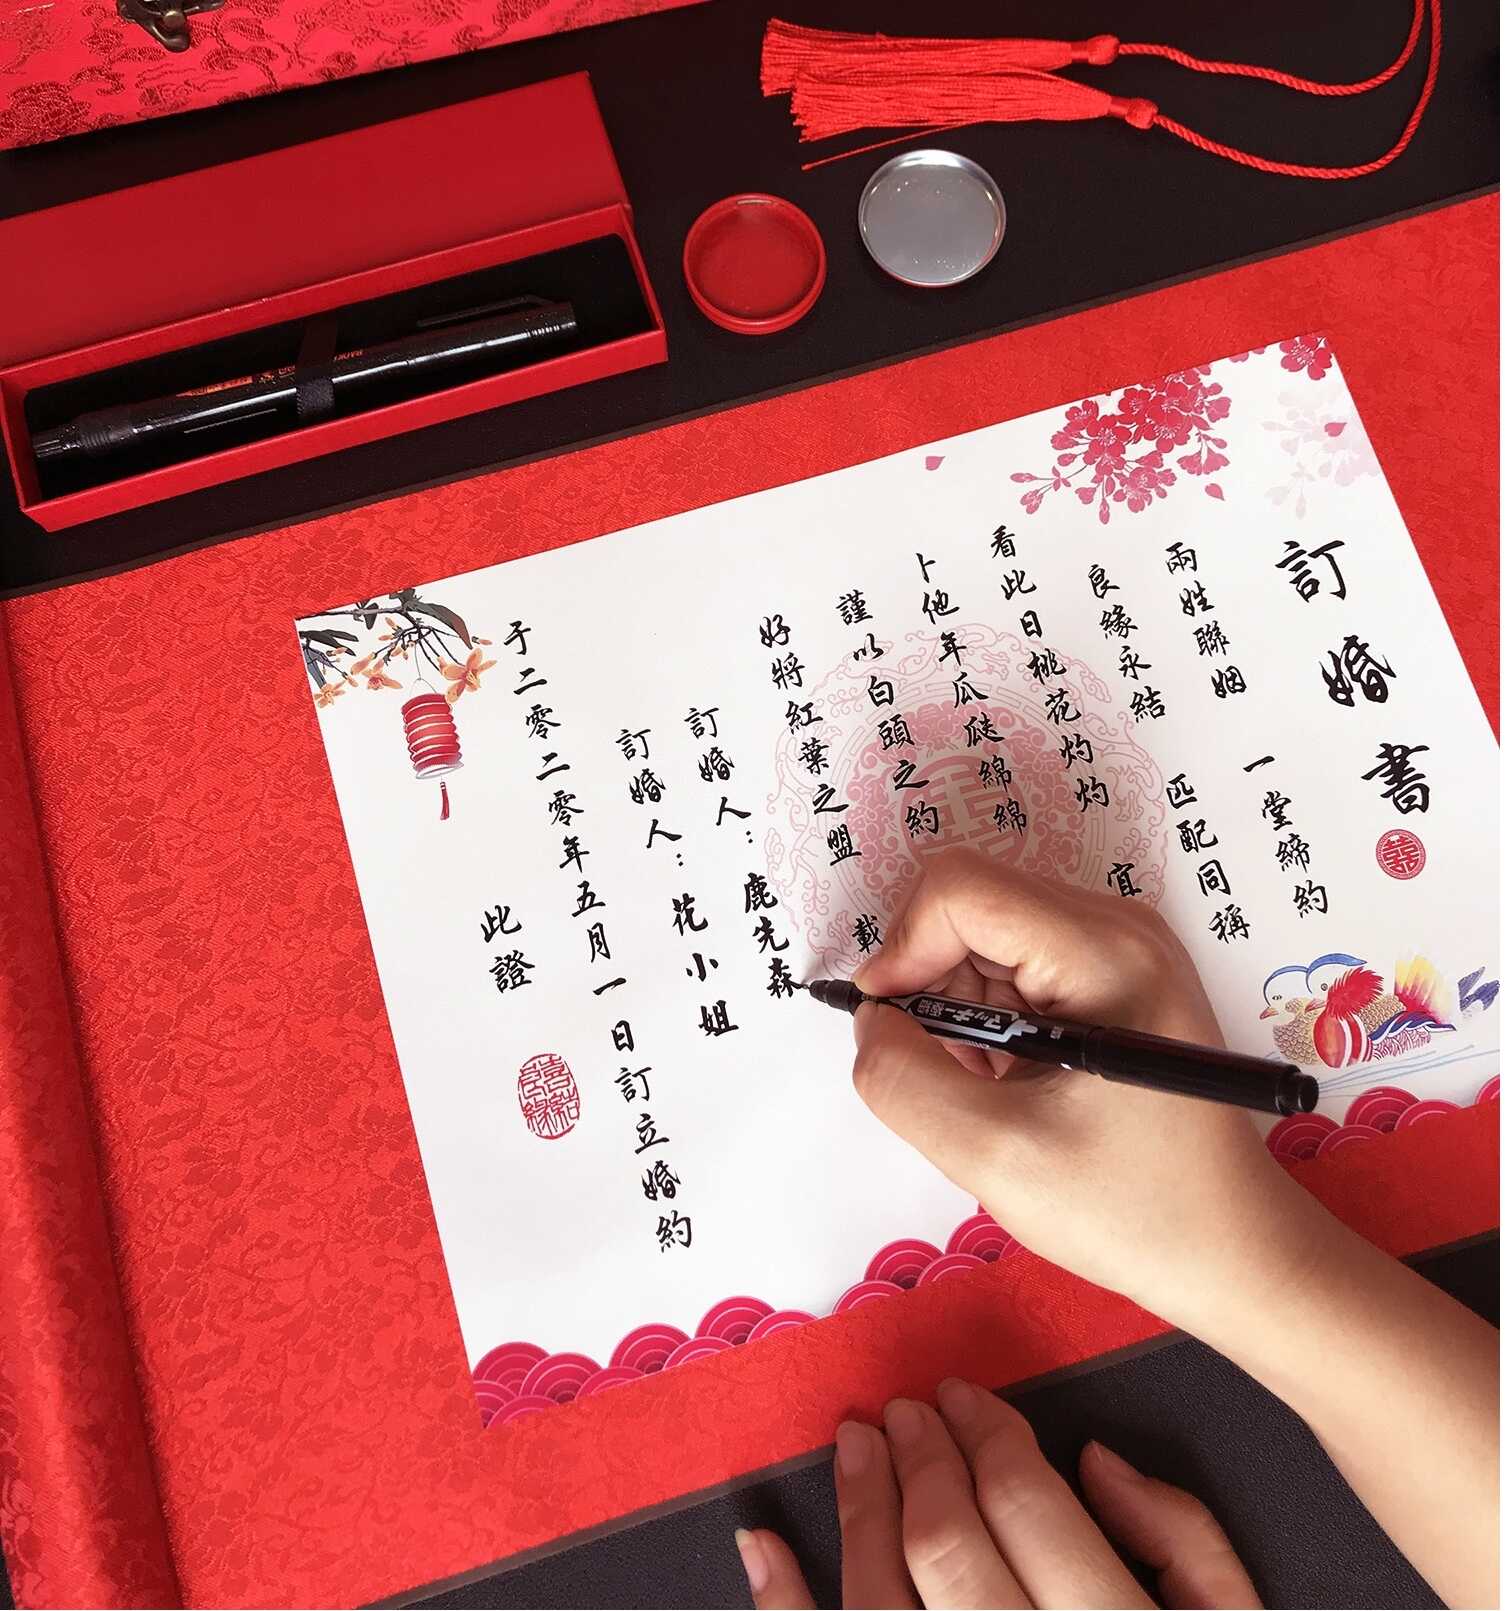 訂婚書
囍
兩姓聯姻 一堂締約
良緣永結 匹配同稱
看此日桃花灼灼 宜
卜他年瓜瓞綿綿
謹以白頭之約
好將紅葉之盟 載
訂婚人：鹿先森
訂婚人：花小姐
于二零二零年五月一日訂立婚約
此證
喜結良緣